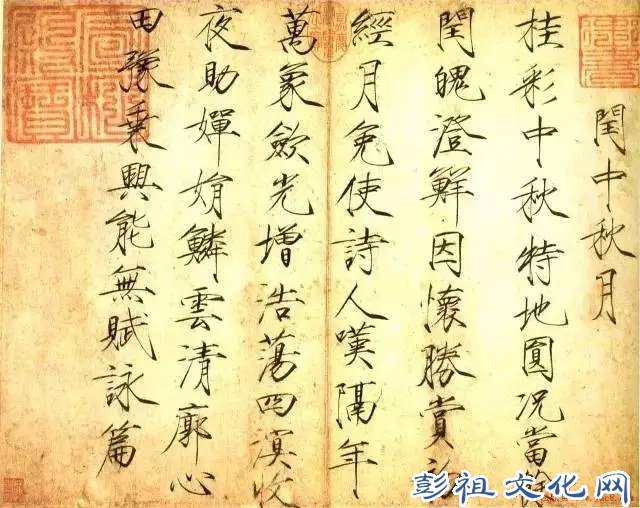 閏中秋月
桂彩中秋特地圓況當餘
閏魄澄鮮因懷勝賞初
經月免使詩人嘆隔年
萬象歛光增浩蕩四溟收
夜助嬋娟鱗雲清廓心
田豫乗興能無賦詠篇
彭祖文化网